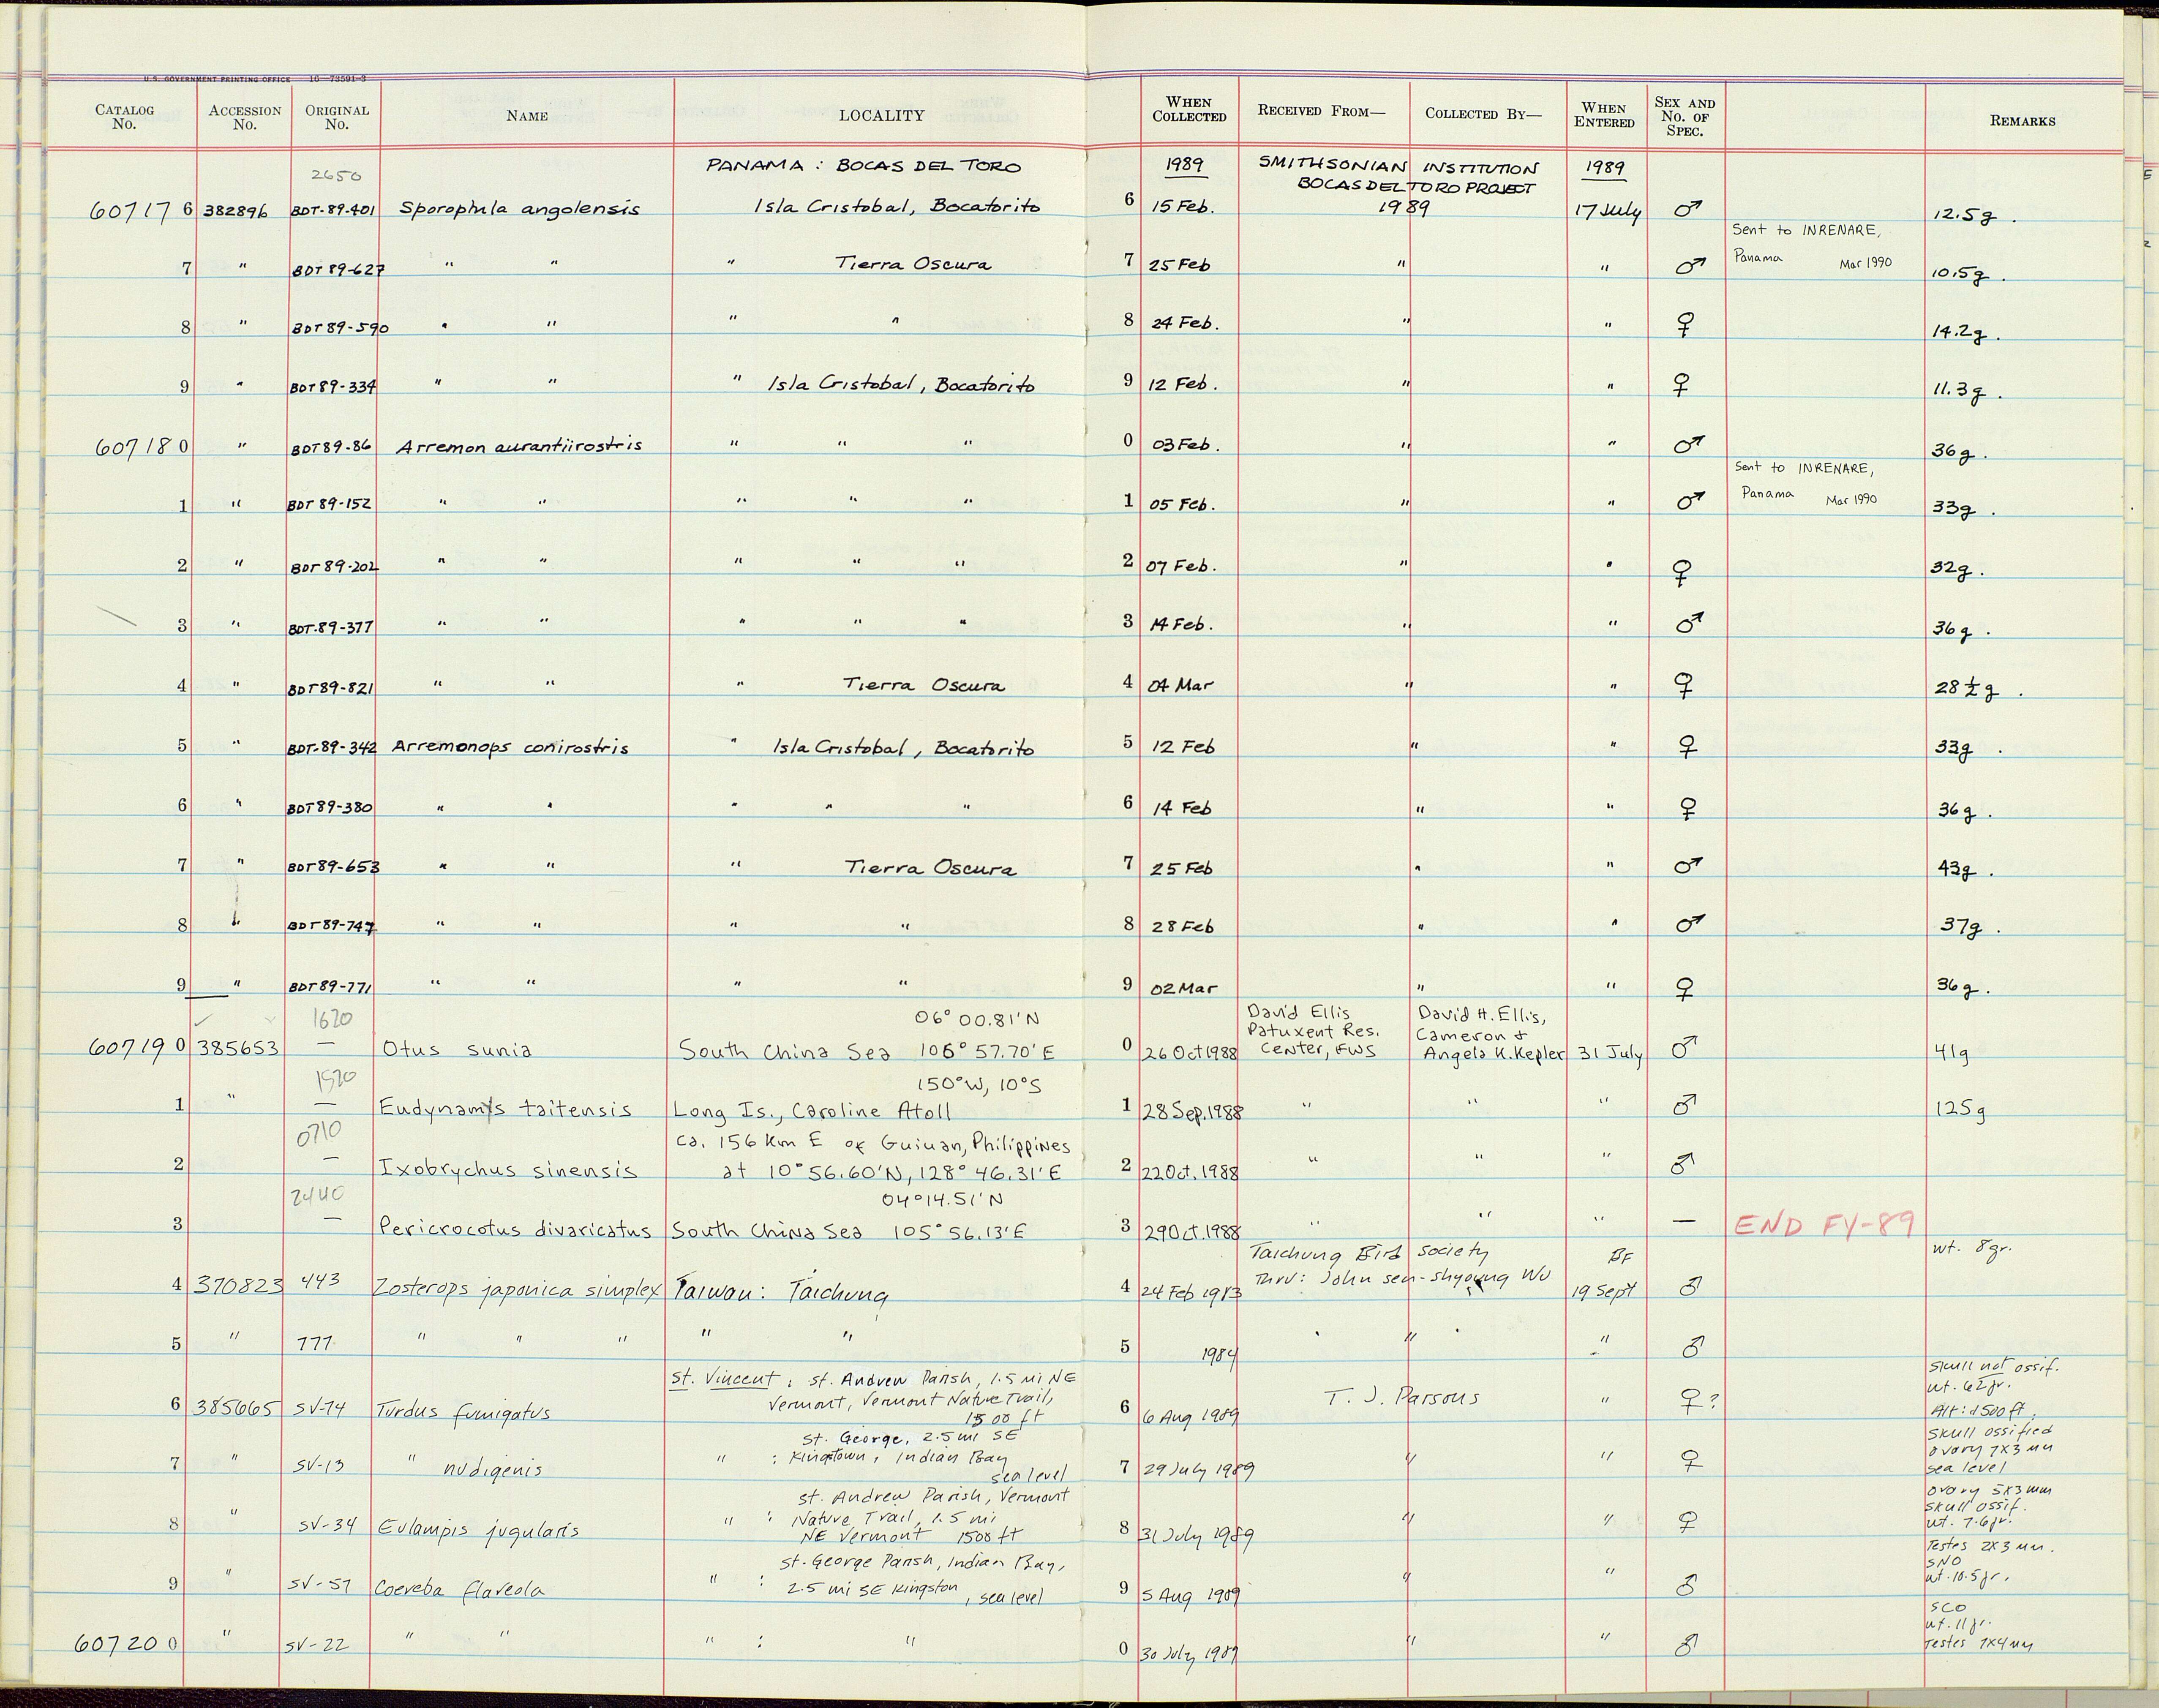 U.S. GOVERNMENT PRINTING OFFICE 16—73591-3
CATALOG No. ACCESSION No. ORIGINAL No. NAME LOCALITY WHEN COLLECTED RECEIVED FROM— COLLECTED BY— WHEN ENTERED SEX AND No. OF SPEC. REMARKS
2650 PANAMA : BOCAS DEL TORO 1989 SMITHSONIAN INSTITUTION 1989
BOCAS DEL TORO PROJECT
60717 6 382896 BDT-89-401 Sporophila angolensis Isla Cristobal, Bocatorito 6 15 Feb. 1989 17 July ♂ 12.5g.
Sent to INRENARE,
Panama Mar 1990
7 " BDT 89-627 " " " Tierra Oscura 7 25 Feb " " ♂ 10.5g.
8 " BDT 89-590 " " " " 8 24 Feb. " " ♀ 14.2g.
9 " BDT 89-334 " " " Isla Cristobal, Bocatorito 9 12 Feb. " " ♀ 11.3g.
60718 0 " BDT 89-86 Arremon aurantiirostris " " " 0 03 Feb. " " ♂ 36g.
Sent to INRENARE,
Panama Mar 1990
1 " BDT 89-152 " " " " " 1 05 Feb. " " ♂ 33g.
2 " BDT 89-202 " " " " " 2 07 Feb. " " ♀ 32g.
3 " BDT-89-377 " " " " " 3 14 Feb. " " ♂ 36g.
4 " BDT 89-821 " " " Tierra Oscura 4 04 Mar " " ♀ 28½g.
5 " BDT-89-342 Arremonops conirostris " Isla Cristobal, Bocatorito 5 12 Feb " " ♀ 33g.
6 " BDT 89-380 " " " " " 6 14 Feb " " ♀ 36g.
7 " BDT 89-653 " " " Tierra Oscura 7 25 Feb " " ♂ 43g.
8 " BDT 89-747 " " " " 8 28 Feb " " ♂ 37g.
9 " BDT 89-771 " " " " 9 02 Mar " " ♀ 36g.
1620 06° 00.81'N David Ellis David H. Ellis,
Patuxent Res. Cameron &
60719 0 385653 — Otus sunia South China Sea 106° 57.70'E 0 26 Oct 1988 Center, FWS Angela K. Kepler 31 July ♂ 41g
1520 150°W, 10°S
1 " — Eudynamys taitensis Long Is., Caroline Atoll 1 28 Sep. 1988 " " " ♂ 125g
0710 ca. 156 km E of Guiuan, Philippines
2 — Ixobrychus sinensis at 10°56.60'N, 128° 46.31'E 2 22 Oct. 1988 " " " ♂
2440 04°14.51'N
3 — Pericrocotus divaricatus South China Sea 105° 56.13'E 3 29 Oct. 1988 " " " — END FY-89
Taichung Bird Society BF wt. 8gr.
4 370823 443 Zosterops japonica simplex Taiwan: Taichung 4 24 Feb 1983 Thru: John sen-shyoung Wu 19 Sept ♂
5 " 777 " " " " " 5 1984 " " ♂
St. Vincent : St. Andrew Parish, 1.5 mi NE Skull not ossif.
Vermont, Vermont Nature Trail, wt. 62gr.
6 385665 SV-74 Turdus fumigatus 1500 ft 6 6 Aug 1989 T. J. Parsons " ♀? Alt: 1500 ft.
St. George, 2.5 mi SE Skull ossified
" : Kingstown, Indian Bay ovary 7X3 mm
7 " SV-13 " nudigenis sea level 7 29 July 1989 " " ♀ sea level
St. Andrew Parish, Vermont ovary 5X3 mm
" : Nature Trail, 1.5 mi skull ossif.
8 " SV-34 Eulampis jugularis NE Vermont 1500 ft 8 31 July 1989 " " ♀ wt. 7.6gr.
St. George Parish, Indian Bay, Testes 2X3 mm.
" : 2.5 mi SE Kingston SNO
9 " SV-57 Coereba flaveola , sea level 9 5 Aug 1989 " " ♂ wt. 10.5gr.
SCO
wt. 11gr.
60720 0 " SV-22 " " " : " 0 30 July 1989 " " ♂ Testes 7X4mm